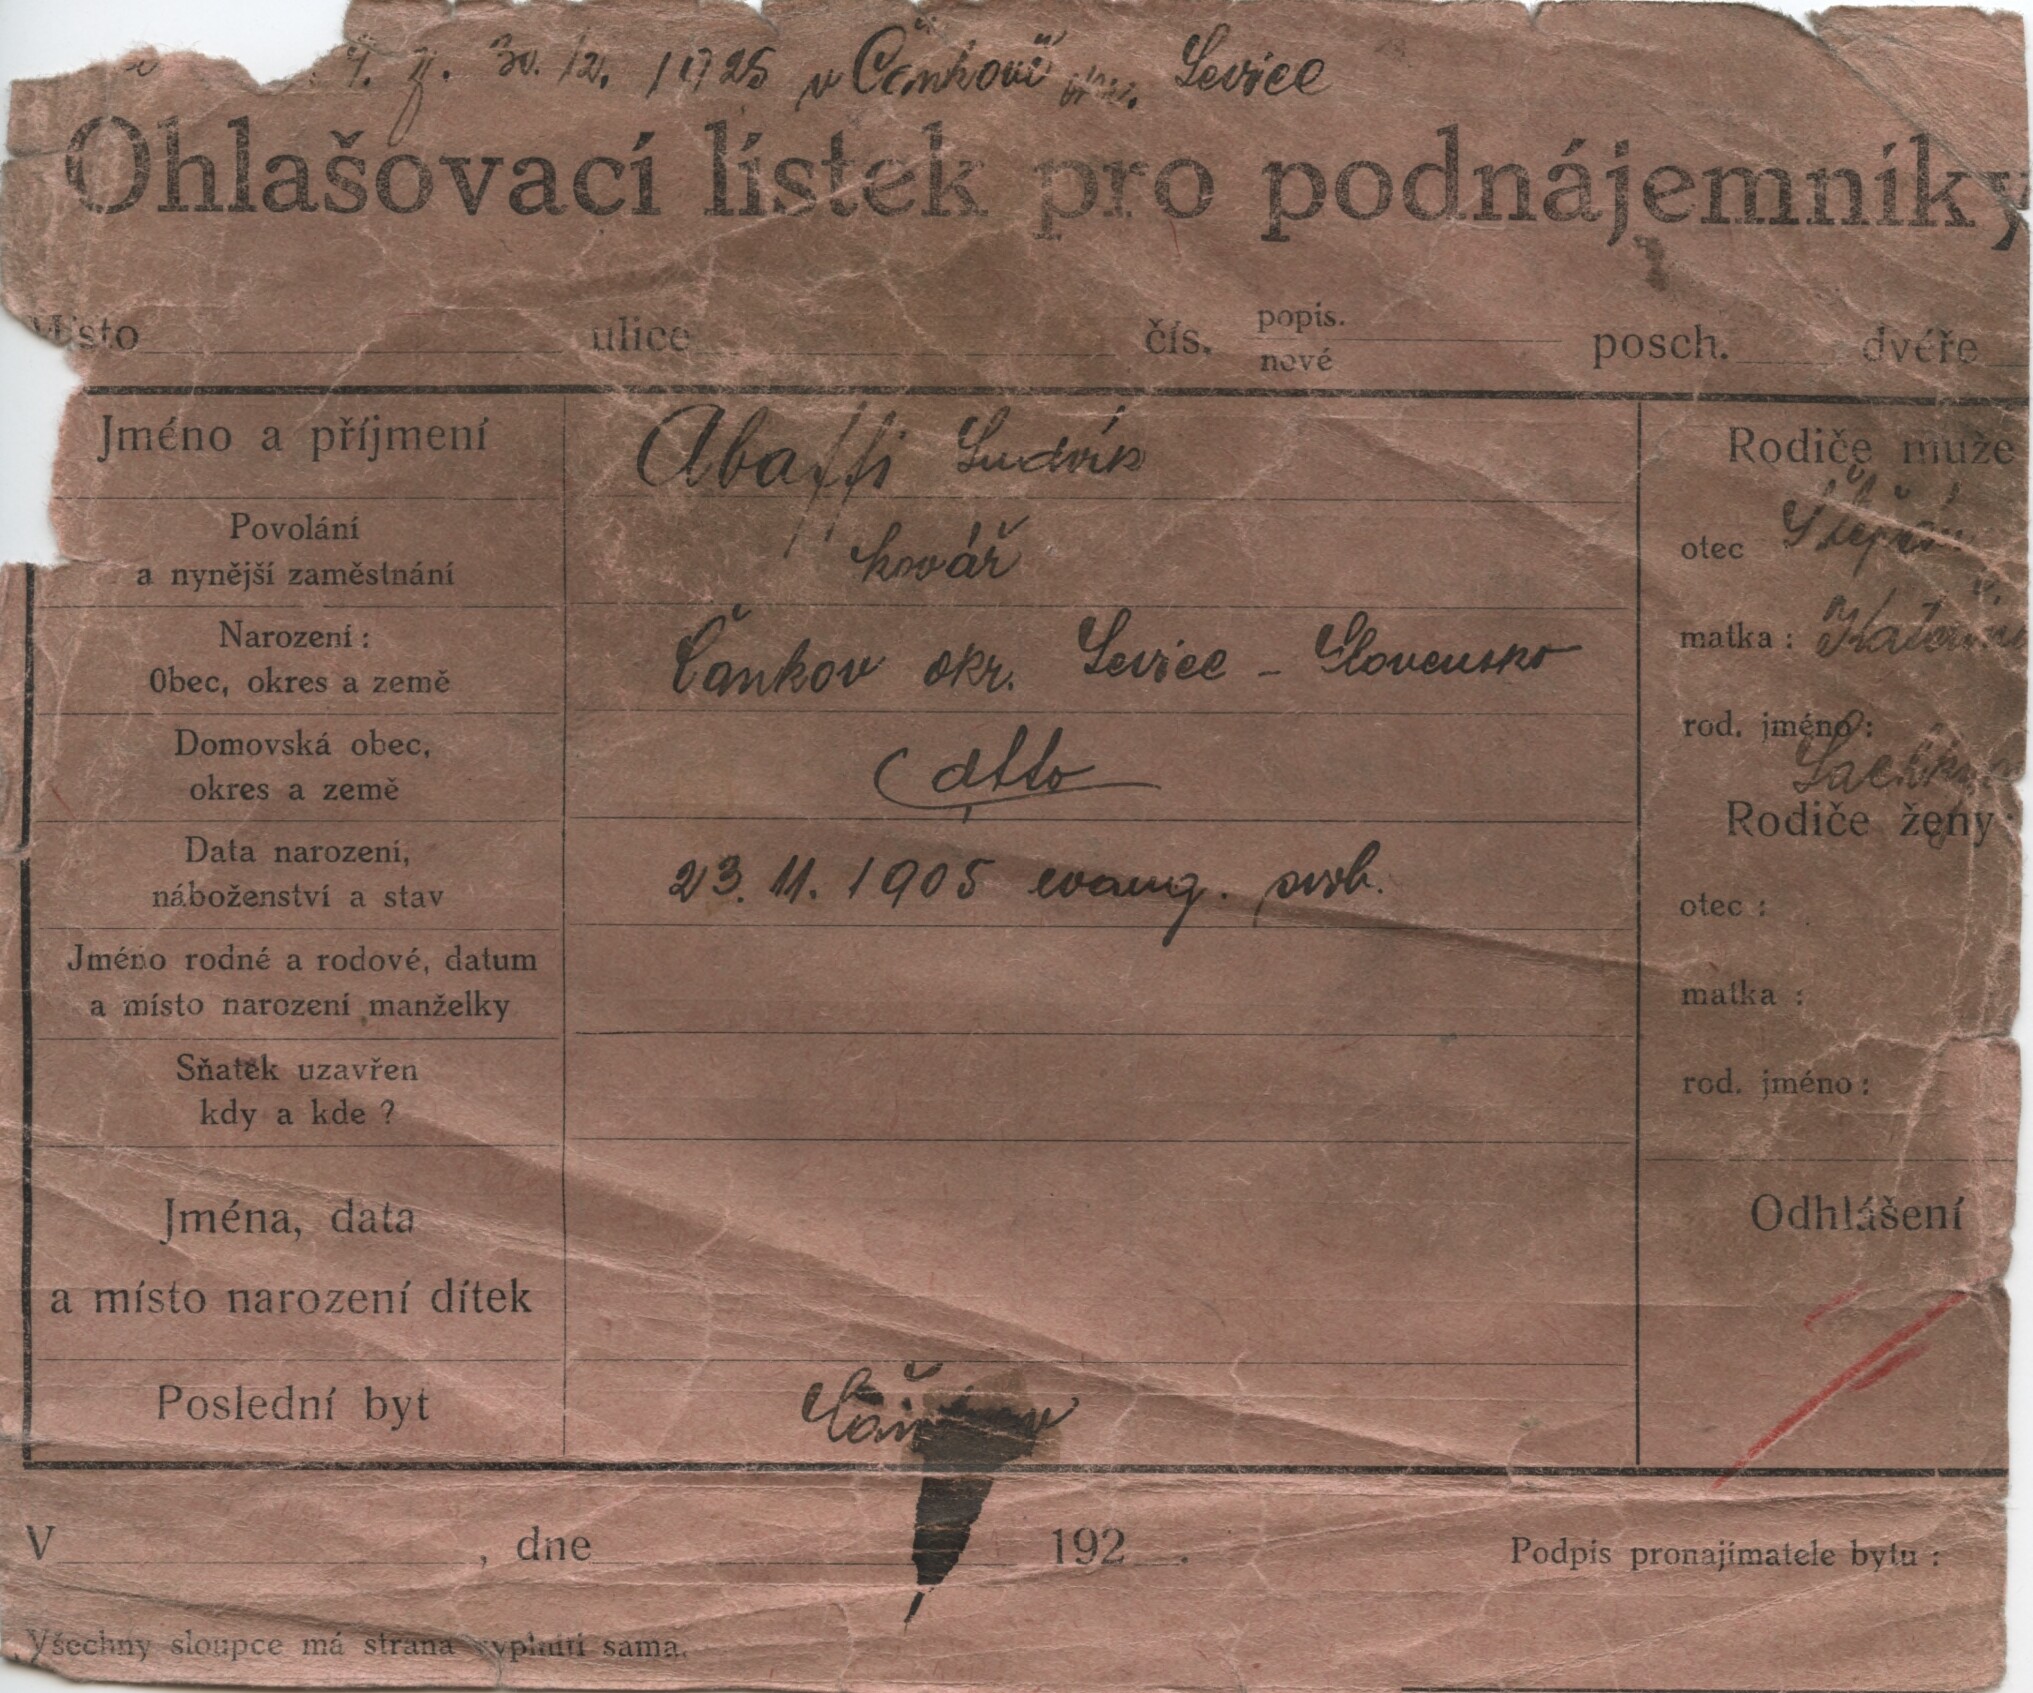 30./12. 1925 v Čankově okr. Levice
Ohlašovací lístek pro podnájemníky
Místo ulice čís. popis. nové posch. dvéře
Jméno a příjmení Abaffi Ludvík
Povolání a nynější zaměstnání kovář
Narození: Obec, okres a země Čankov okr. Levice – Slovensko
Domovská obec, okres a země dtto
Data narození, náboženství a stav 23. 11. 1905 evang. svob.
Jméno rodné a rodové, datum a místo narození manželky
Sňatek uzavřen kdy a kde?
Jména, data
a místo narození dítek
Poslední byt Čankov
Rodiče muže
otec Štěpán
matka:
rod. jméno:
Rodiče ženy:
otec:
matka:
rod. jméno:
Odhlášení
V , dne 192 .
Podpis pronajímatele bytu:
Všechny sloupce má strana vyplniti sama.